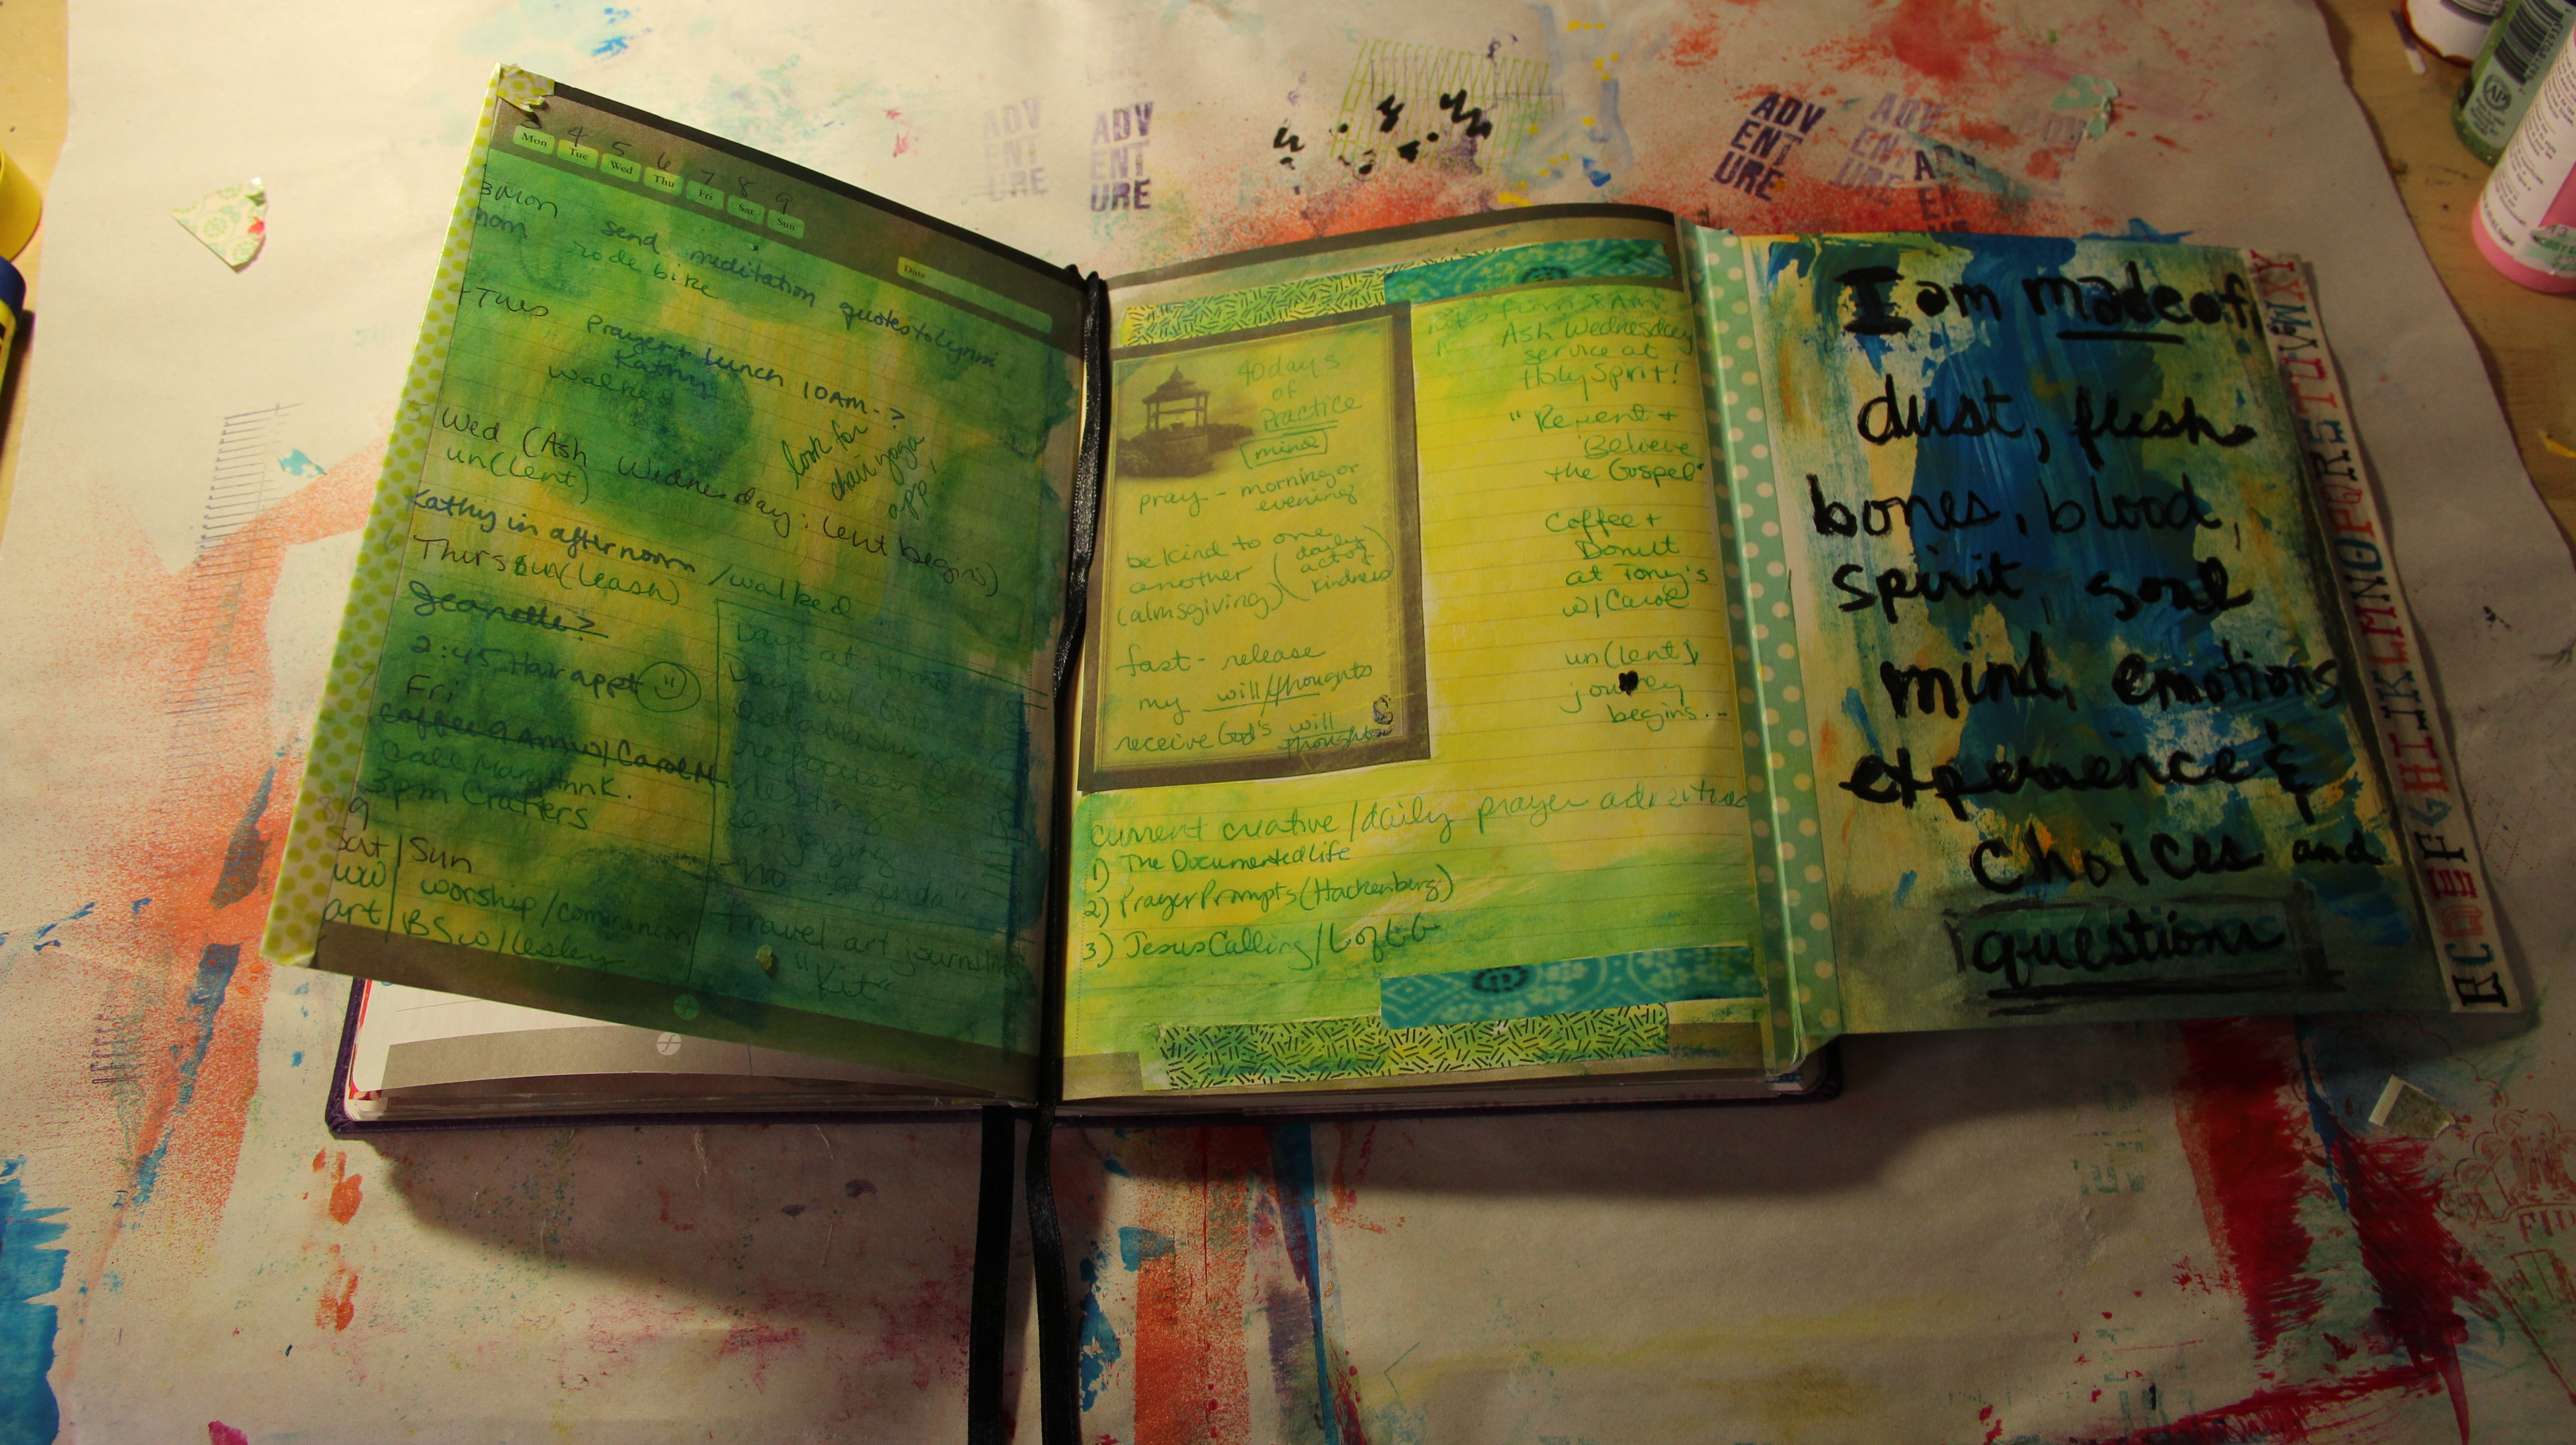 4 5 6 7 8 9
Mon Tue Wed Thu Fri Sat Sun
Date
3 Mon send meditation quotes to Lynni
mom rode bike
Tues Prayer + lunch 10AM->
Kathy
walked
look for
chair yoga
app!
5 Wed (Ash Wednesday: lent begins)
un(lent)
Kathy in afternoon / walked
Thurs un(leash)
Jeanette?
2:45 Hair appt
Fri
Coffee 9AM w/ Carol M
Call Mary Ann K.
3pm Crafters
8 9
Sat | Sun
WW | worship/communion
art | BS w/ Lesley
Days at Home
establishing
refocusing
resting
enjoying
no "agenda"
travel art journaling
"Kit"
40 days
of
Practice
[mind]
pray - morning or
evening
be kind to one
another (daily
act of
kindness)
(almsgiving)
fast - release
my will/thoughts
receive God's will
thoughts
Ash Wednesday
service at
Holy Spirit!
"Repent +
Believe
the Gospel"
Coffee +
Donut
at Tony's
w/ Carol
un(lent)
journey
begins...
current creative/daily prayer adventures
1) The Documented Life
2) Prayer Prompts (Hackenberg)
3) Jesus Calling/
I am made of
dust, flesh
bones, blood,
spirit, soul
mind, emotions
experience &
choices and
questions
ADV
ENT
URE
ADV
ENT
URE
ADV
ENT
URE
ADV
ENT
URE
ADV
ENT
URE